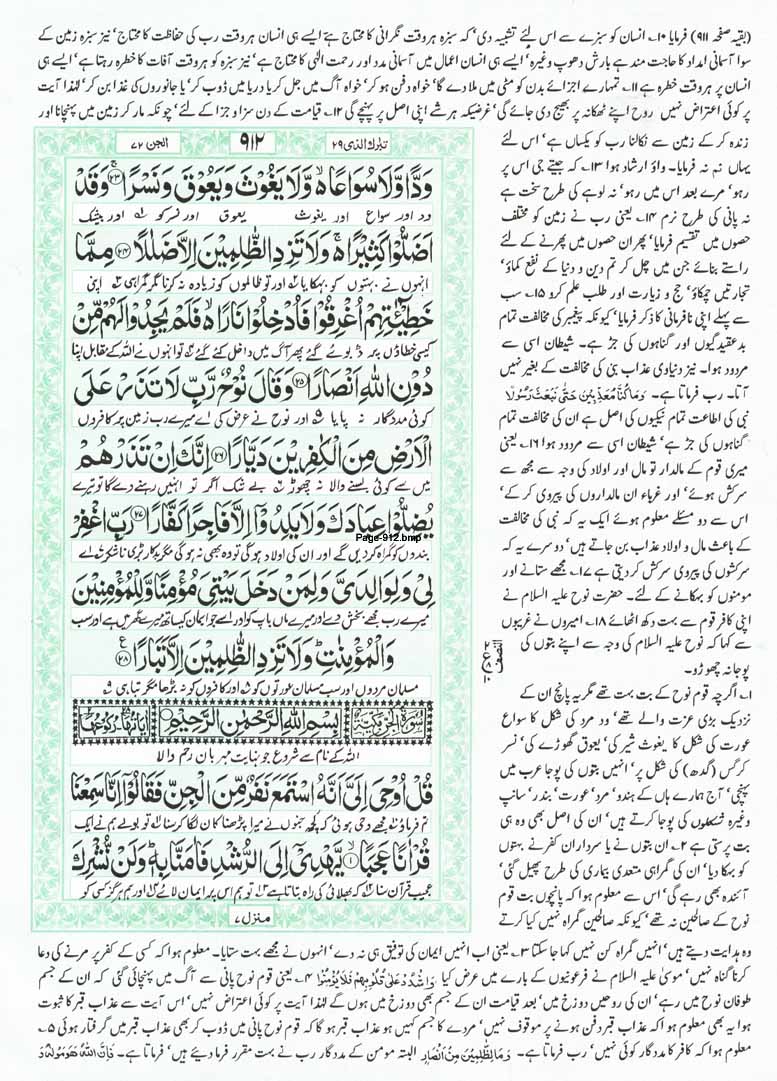 (بقیہ صفحہ ۹۱۱) فرمایا ۱۰۔ انسان کو سبزے سے اس لئے تشبیہ دی، کہ سبزہ ہر وقت نگرانی کا محتاج ہے ایسے ہی انسان ہر وقت رب کی حفاظت کا محتاج، نیز سبزہ زمین کے
سوا آسمانی امداد کا حاجت مند ہے بارش دھوپ وغیرہ، ایسے ہی انسان اعمال میں آسمانی مدد اور رحمت الٰہی کا محتاج ہے، نیز سبزہ کو ہر وقت آفات کا خطرہ رہتا ہے، ایسے ہی
انسان پر ہر وقت خطرہ ہے ۱۱۔ تمہارے اجزائے بدن کو مٹی میں ملا دے گا، خواہ دفن ہو کر، خواہ آگ میں جل کر یا دریا میں ڈوب کر، یا جانوروں کی غذا بن کر، لہٰذا آیت
پر کوئی اعتراض نہیں روح اپنے ٹھکانہ پر بھیج دی جائے گی، غرضیکہ ہر شے اپنی اصل پر پہنچے گی ۱۲۔ قیامت کے دن سزا و جزا کے لئے، چونکہ مار کر زمین میں پہنچانا اور
زندہ کر کے زمین سے نکالنا رب کو یکساں ہے، اس لئے
یہاں ثم نہ فرمایا۔ واؤ ارشاد ہوا ۱۳۔ کہ جیتے جی اس پر
رہو، مرے بعد اس میں رہو، نہ لوہے کی طرح سخت ہے
نہ پانی کی طرح نرم ۱۴۔ یعنی رب نے زمین کو مختلف
حصوں میں تقسیم فرمایا، پھر ان حصوں میں پھرنے کے لئے
راستے بنائے جن میں چل کر تم دین و دنیا کے نفع کماؤ،
تجارتیں چمکاؤ، حج و زیارت اور طلب علم کرو ۱۵۔ سب
سے پہلے اپنی نافرمانی کا ذکر فرمایا، کیونکہ پیغمبر کی مخالفت تمام
بدعقیدگیوں اور گناہوں کی جڑ ہے۔ شیطان اسی سے
مردود ہوا۔ نیز دنیاوی عذاب نبی کی مخالفت کے بغیر نہیں
آتا۔ رب فرماتا ہے۔ وَمَا كُنَّا مُعَذِّبِينَ حَتّٰى نَبْعَثَ رَسُولًا
نبی کی اطاعت تمام نیکیوں کی اصل ہے ان کی مخالفت تمام
گناہوں کی جڑ ہے، شیطان اسی سے مردود ہوا ۱۶۔ یعنی
میری قوم کے مالدار تو مال اور اولاد کی وجہ سے مجھ سے
سرکش ہوئے، اور غرباء ان مالداروں کی پیروی کر کے،
اس سے دو مسئلے معلوم ہوئے ایک یہ کہ نبی کی مخالفت
کے باعث مال و اولاد عذاب بن جاتے ہیں، دوسرے یہ کہ
سرکشوں کی پیروی سرکش کر دیتی ہے ۱۷۔ مجھے ستانے اور
مومنوں کو بہکانے کے لئے۔ حضرت نوح علیہ السلام نے
اپنی کافر قوم سے بہت دکھ اٹھائے ۱۸۔ امیروں نے غریبوں
سے کہا کہ نوح علیہ السلام کی وجہ سے اپنے بتوں کی
پوجا نہ چھوڑو۔
۱۔ اگرچہ قوم نوح کے بت بہت تھے مگر یہ پانچ ان کے
نزدیک بڑی عزت والے تھے، ود مرد کی شکل کا سواع
عورت کی شکل کا یغوث شیر کی، یعوق گھوڑے کی، نسر
کرگس (گدھ) کی شکل پر، انہیں بتوں کی پوجا عرب میں
پہنچی، آج ہمارے ہاں کے ہندو، مرد، عورت، بندر، سانپ
وغیرہ شکلوں کی پوجا کرتے ہیں، ان کی اصل بھی وہ ہی
بت پرستی ہے ۲۔ ان بتوں نے یا سرداران کفر نے بہتوں
کو بہکا دیا، ان کی گمراہی متعدی بیماری کی طرح پھیل گئی،
آئندہ بھی رہے گی، اس سے معلوم ہوا کہ پانچوں بت قوم
نوح کے صالحین نہ تھے، کیونکہ صالحین گمراہ نہیں کیا کرتے
تبارك الذى ۲۹ ۹۱۲ الجن ۷۲
وَدًّا وَّلَا سُوَاعًا ۙ وَّلَا يَغُوْثَ وَيَعُوْقَ وَنَسْرًا ۚ ﴿۲۳﴾ وَقَدْ
ود اور سواع اور یغوث یعوق اور نسر کو ۱؎ اور بیشک
اَضَلُّوْا كَثِيْرًا ۚ وَلَا تَزِدِ الظّٰلِمِيْنَ اِلَّا ضَلٰلًا ﴿۲۴﴾ مِمَّا
انہوں نے بہتوں کو بہکایا ۲؎ اور تو ظالموں کو زیادہ نہ کرنا مگر گمراہی ۳؎ اپنی
خَطِيْٓـٰٔتِهِمْ اُغْرِقُوْا فَاُدْخِلُوْا نَارًا ۙ فَلَمْ يَجِدُوْا لَهُمْ مِّنْ
کیسی خطاؤں پر ڈبوئے گئے پھر آگ میں داخل کئے گئے ۴؎ تو انہوں نے اللہ کے مقابل اپنا
دُوْنِ اللّٰهِ اَنْصَارًا ﴿۲۵﴾ وَقَالَ نُوْحٌ رَّبِّ لَا تَذَرْ عَلَى
کوئی مددگار نہ پایا ۵؎ اور نوح نے عرض کی اے میرے رب زمین پر کافروں
الْاَرْضِ مِنَ الْكٰفِرِيْنَ دَيَّارًا ﴿۲۶﴾ اِنَّكَ اِنْ تَذَرْهُمْ
میں سے کوئی بسنے والا نہ چھوڑ بے شک اگر تو انہیں رہنے دے گا تو تیرے
يُضِلُّوْا عِبَادَكَ وَلَا يَلِدُوْٓا اِلَّا فَاجِرًا كَفَّارًا ﴿۲۷﴾ رَبِّ اغْفِرْ
Page-912.bmp
بندوں کو گمراہ کر دیں گے اور ان کی اولاد ہوگی تو وہ بھی نہ ہوگی مگر بدکار بڑی ناشکر اے
لِيْ وَلِوَالِدَيَّ وَلِمَنْ دَخَلَ بَيْتِيَ مُؤْمِنًا وَّلِلْمُؤْمِنِيْنَ
میرے رب مجھے بخش دے اور میرے ماں باپ کو اور اسے جو ایمان کے ساتھ میرے گھر میں ہے اور سب
وَالْمُؤْمِنٰتِ ؕ وَلَا تَزِدِ الظّٰلِمِيْنَ اِلَّا تَبَارًا ﴿۲۸﴾ ع
مسلمان مردوں اور سب مسلمان عورتوں کو اور کافروں کو نہ بڑھا مگر تباہی
سُوْرَةُ الْجِنِّ مَكِّيَّةٌ بِسْمِ اللّٰهِ الرَّحْمٰنِ الرَّحِيْمِ اٰيَاتُهَا ۲۸ رُكُوْعَاتُهَا ۲
اللہ کے نام سے شروع جو نہایت مہربان رحم والا
قُلْ اُوْحِيَ اِلَيَّ اَنَّهُ اسْتَمَعَ نَفَرٌ مِّنَ الْجِنِّ فَقَالُوْٓا اِنَّا سَمِعْنَا
تم فرماؤ مجھے وحی ہوئی کہ کچھ جنوں نے میرا پڑھنا کان لگا کر سنا تو بولے ہم نے ایک
قُرْاٰنًا عَجَبًا ﴿۱﴾ يَّهْدِيْٓ اِلَى الرُّشْدِ فَاٰمَنَّا بِهٖ ؕ وَلَنْ نُّشْرِكَ
عجیب قرآن سنا کہ بھلائی کی راہ بتاتا ہے تو ہم اس پر ایمان لائے اور ہم ہرگز کسی کو
منزل ۷
النصف
وہ ہدایت دیتے ہیں، انہیں گمراہ کن نہیں کہا جا سکتا ۳۔ یعنی اب انہیں ایمان کی توفیق ہی نہ دے، انہوں نے مجھے بہت ستایا۔ معلوم ہوا کہ کسی کے کفر پر مرنے کی دعا
کرنا گناہ نہیں، موسیٰ علیہ السلام نے فرعونیوں کے بارے میں عرض کیا وَاشْدُدْ عَلٰى قُلُوْبِهِمْ فَلَا يُؤْمِنُوْا ۴۔ یعنی قوم نوح پانی سے آگ میں پہنچائی گئی کہ ان کے جسم
طوفان نوح میں رہے، ان کی روحیں دوزخ میں، بعد قیامت ان کے جسم بھی دوزخ میں ہوں گے لہٰذا آیت پر کوئی اعتراض نہیں، اس آیت سے عذاب قبر کا ثبوت
ہوا یہ بھی معلوم ہوا کہ عذاب قبر دفن ہونے پر موقوف نہیں، مردے کا جسم کہیں ہو عذاب قبر ہو گا کہ قوم نوح پانی میں ڈوب کر بھی عذاب قبر میں گرفتار ہوئی ۵۔
معلوم ہوا کہ کافر کا مددگار کوئی نہیں، رب فرماتا ہے۔ وَمَا لِلظّٰلِمِيْنَ مِنْ اَنْصَارٍ البتہ مومن کے مددگار رب نے بہت مقرر فرما دیئے ہیں، فرماتا ہے۔ فَاِنَّ اللّٰهَ هُوَ مَوْلٰىهُ وَ